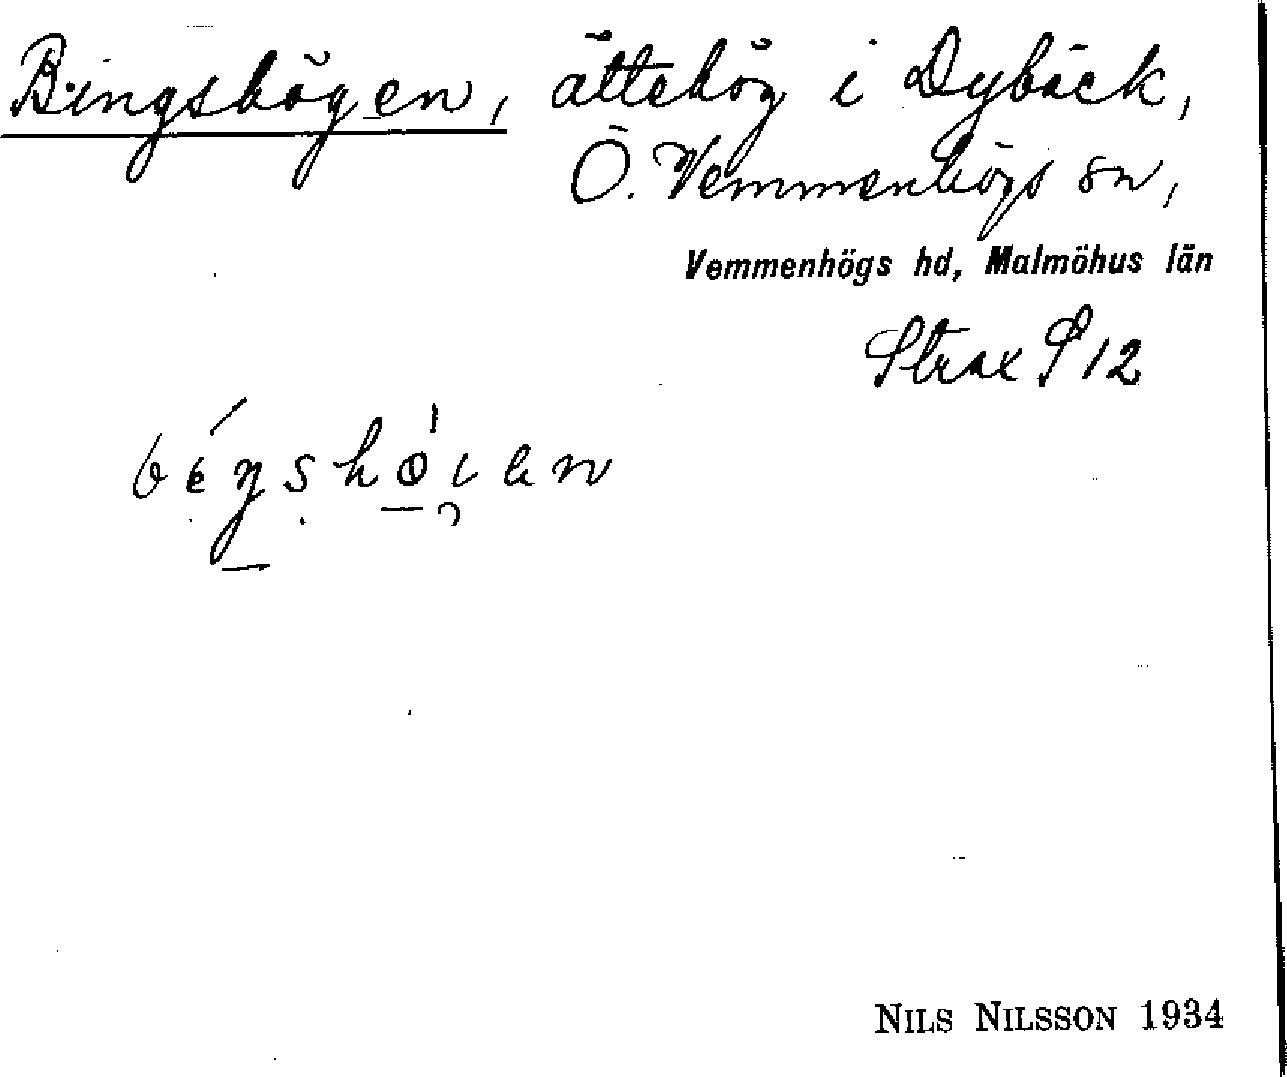 Bingshögen, ättehög i Dybäck,
Ö. Vemmenhögs sn,
Vemmenhögs hd, Malmöhus län
Strax S 12
NILS NILSSON 1934